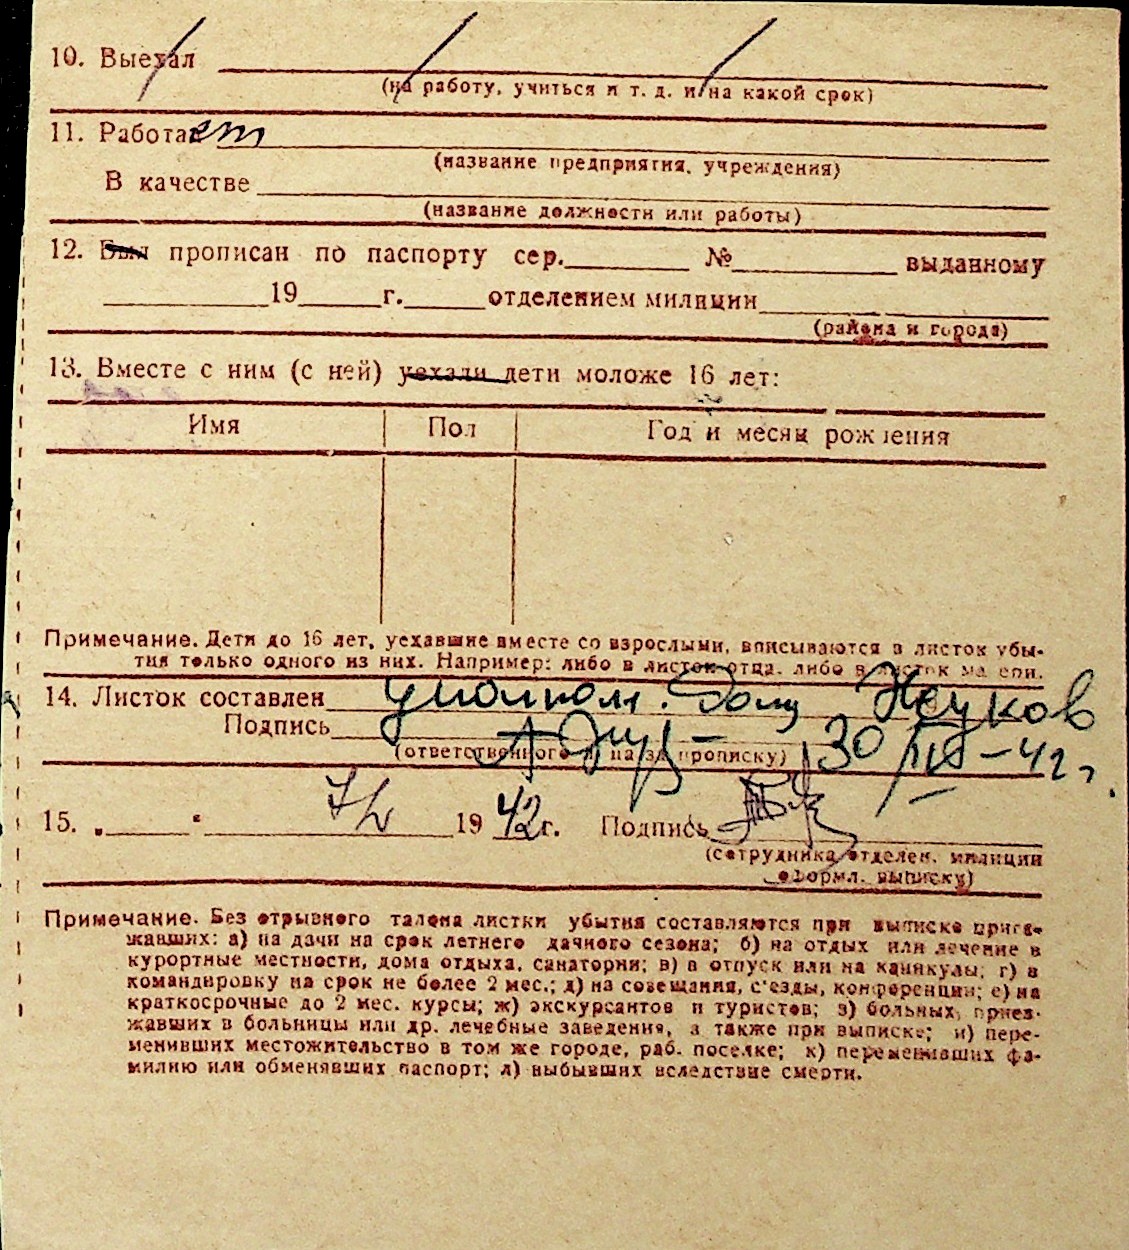 10. Выехал
(на работу, учиться и т. д. и на какой срок)
11. Работает
(название предприятия, учреждения)
В качестве
(название должности или работы)
12. Был прописан по паспорту сер. № выданному
19 г. отделением милиции
(района и города)
13. Вместе с ним (с ней) уехали дети моложе 16 лет:
Имя Пол Год и месяц рождения
Примечание. Дети до 16 лет, уехавшие вместе со взрослыми, вписываются в листок убы-
тия только одного из них. Например: либо в листок отца, либо в листок матери.
14. Листок составлен
Подпись 30
(ответственного лица за прописку)
15. " " 1942 г. Подпись
(сотрудника отделен. милиции
оформл. выписку)
Примечание. Без отрывного талона листки убытия составляются при выписке приез-
жавших: а) на дачи на срок летнего дачного сезона; б) на отдых или лечение в
курортные местности, дома отдыха, санатории; в) в отпуск или на каникулы; г) в
командировку на срок не более 2 мес.; д) на совещания, с'езды, конференции; е) на
краткосрочные до 2 мес. курсы; ж) экскурсантов и туристов; з) больных, приез-
жавших в больницы или др. лечебные заведения, а также при выписке; и) пере-
менивших местожительство в том же городе, раб. поселке; к) переменивших фа-
милию или обменявших паспорт; л) выбывших вследствие смерти.